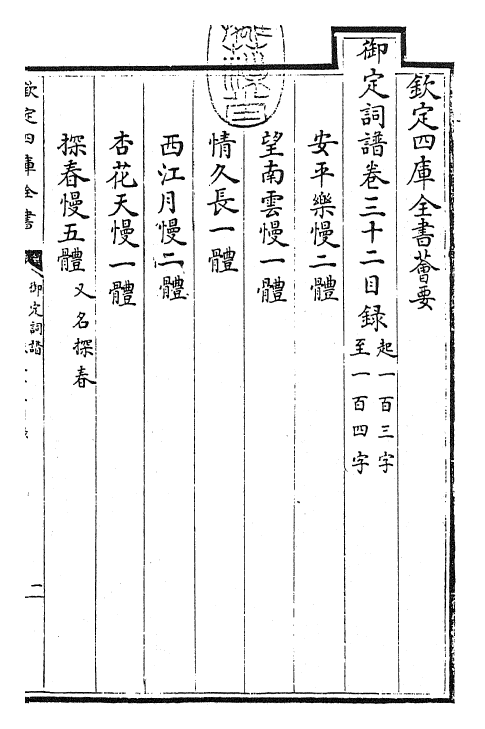 欽定四庫全書薈要
御定詞譜卷三十二目録 起一百三字
至一百四字
安平樂慢二體
望南雲慢一體
情久長一體
西江月慢二體
杏花天慢一體
探春慢五體 又名探春
欽定四庫全書
御定詞譜